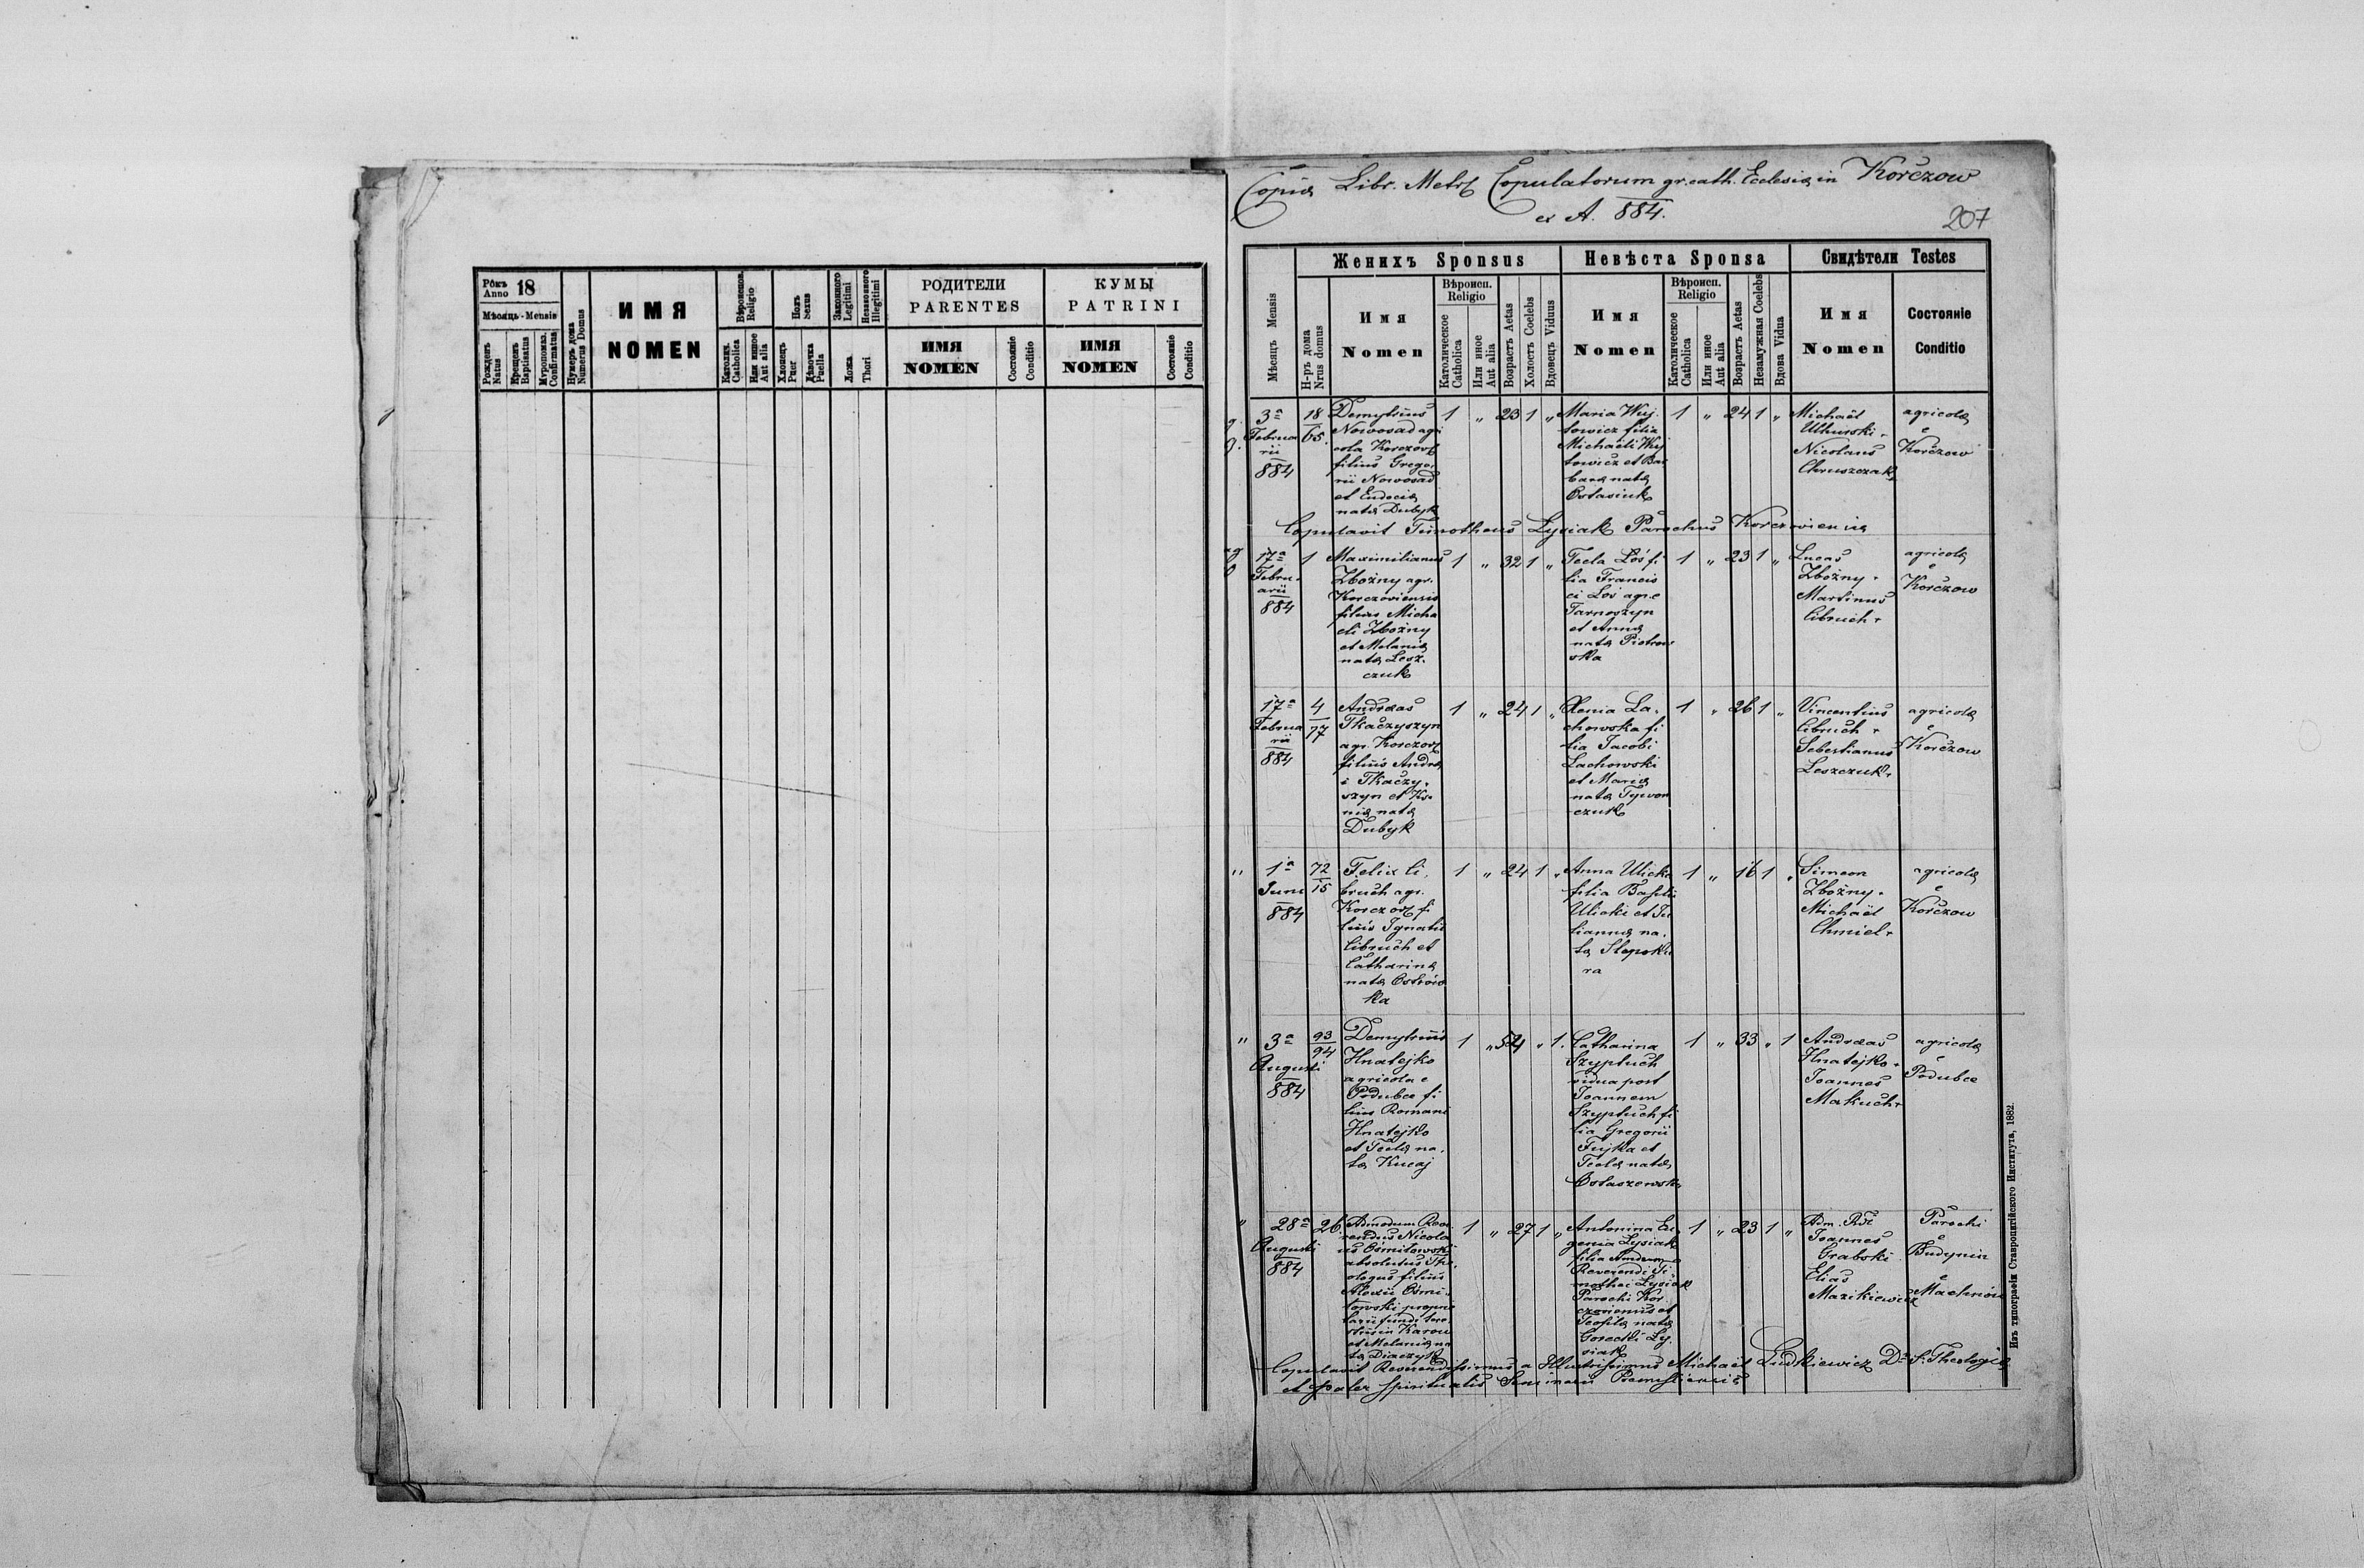 Рôкъ
Anno 18
Мѣсяць - Mensis
Рожденъ
Natus
Крещенъ
Baptisatus
Муропомаз.
Confirmatus
Нумеръ дома
Numerus Domus
ИМЯ
NOMEN
Вѣроиспов.
Religio
Католич.
Catholica
Или иное
Aut alia
Полъ
Sexus
Хлопець
Puer
Дѣвочка
Puella
Законного
Legitimi
Незаконного
Illegitimi
Ложа
Thori
РОДИТЕЛИ
PARENTES
ИМЯ
NOMEN
Состояніе
Conditio
КУМЫ
PATRINI
ИМЯ
NOMEN
Состояніе
Conditio
Copia Libr. Metr. Copulatorum gr. cath. Ecclesia in Korczow
ex A. 884.
207
Мѣсяць Mensis
Женихъ Sponsus
Н-ръ дома
Nrus domus
Имя
Nomen
Вѣроисп.
Religio
Католическое
Catholica
Или иное
Aut alia
Возрастъ Aetas
Холостъ Coelebs
Вдовець Viduus
Невѣста Sponsa
Имя
Nomen
Вѣроисп.
Religio
Католическое
Catholica
Или иное
Aut alia
Возрастъ Aetas
Незамужная Coelebs
Вдова Vidua
Свидѣтели Testes
Имя
Nomen
Состояніе
Conditio
3a
Februa
rii
884
18
65.
Demytrius
Nowosad agri
cola Korczov
filius Grego
rii Nowosad
et Eudocia
nata Dubyk
1 " 23 1 "
Maria Wuj
towicz filia
Michaëli Wuj
towicz et Bar
bara nata
Ostasiuk
1 " 24 1 "
Michaël
Uhurski
Nicolaus
Chruszczak
agricola
e
Korczow
Copulavit Timotheus Lysiak Parochus Korczovien
17a
Febru
arii
884
1
Maximilianus
Zbożny agr.
Korczoviensis
filius Micha
eli Zbożny
et Melania
nata Lesz
czuk
1 " 32 1 "
Tecla Łoś fi
lia Francis
ci Łoś agr. e
Tarnoszyn
et Anna
nata Piotrow
ska
1 " 23 1 "
Lucas
Zbożny
Martinus
Cibruch
agricola
e
Korczow
17a
Februa
rii
884
4
77
Andreas
Tkaczyszyn
agr. Korczov
filius Andre
i Tkaczy
szyn et Xe
nia nata
Dubyk
1 " 24 1 "
Xenia La
chowska fi
lia Jacobi
Lachowski
et Maria
nata Tywon
czuk
1 " 26 1 "
Vincentius
Cibruch
Sebestianus
Leszczuk
agricola
e
Korczow
" 1a
Juni
884
72
15
Felix Ci
bruch agr.
Korczov fi
lius Ignatii
Cibruch et
Catharina
nata Ostrow
ska
1 " 24 1 "
Anna Ulicki
filia Basili
Ulicki et Ju
lianna na
ta Slepoku
ra
1 " 16 1 "
Simeon
Zbożny
Michaël
Chmiel
agricola
e
Korczow
" 3a
Augusti
884
93
94
Demytrius
Hnatejko
agricola e
Podubce fi
lius Romani
Hnatejko
et Tecla na
ta Kucaj
1 " 54 " 1.
Catharina
Szyptuch
vidua post
Joannem
Szyptuch fi
lia Gregorii
Fujka et
Tecla nata
Ostaszewsk
1 " 33 " 1
Andreas
Hnatejko
Joannes
Makuch
agricola
e
Podubce
" 28a
Augusti
884
26
Admodum Reve
rendus Nicola
us Ośmiłowski
absolutus The
ologus filius
Alexii Ośmi
łowski proprie
tarii fundi terre
stris in Karow
et Melania na
ta Diaczyk
1 " 27 1 "
Antonina Eu
genia Lysiak
filia Admdum
Reverendi Ti
mothei Lysiak
Parochi Kor
czoviensis et
Teofila nata
Gorecki Ly
siak
1 " 23 1 "
Adm. Rdi
Joannes
Grabski
Elias
Mazikiewicz
Parochi
e
Budynin
e
Machnów
Copulavit Reverendissimus a Illustrissimus Michaël Ludkiewicz Dr S. Theologia
et Pater spiritualis Seminarii Premisliensis
Изъ типографіи Ставропигійского Института, 1882.